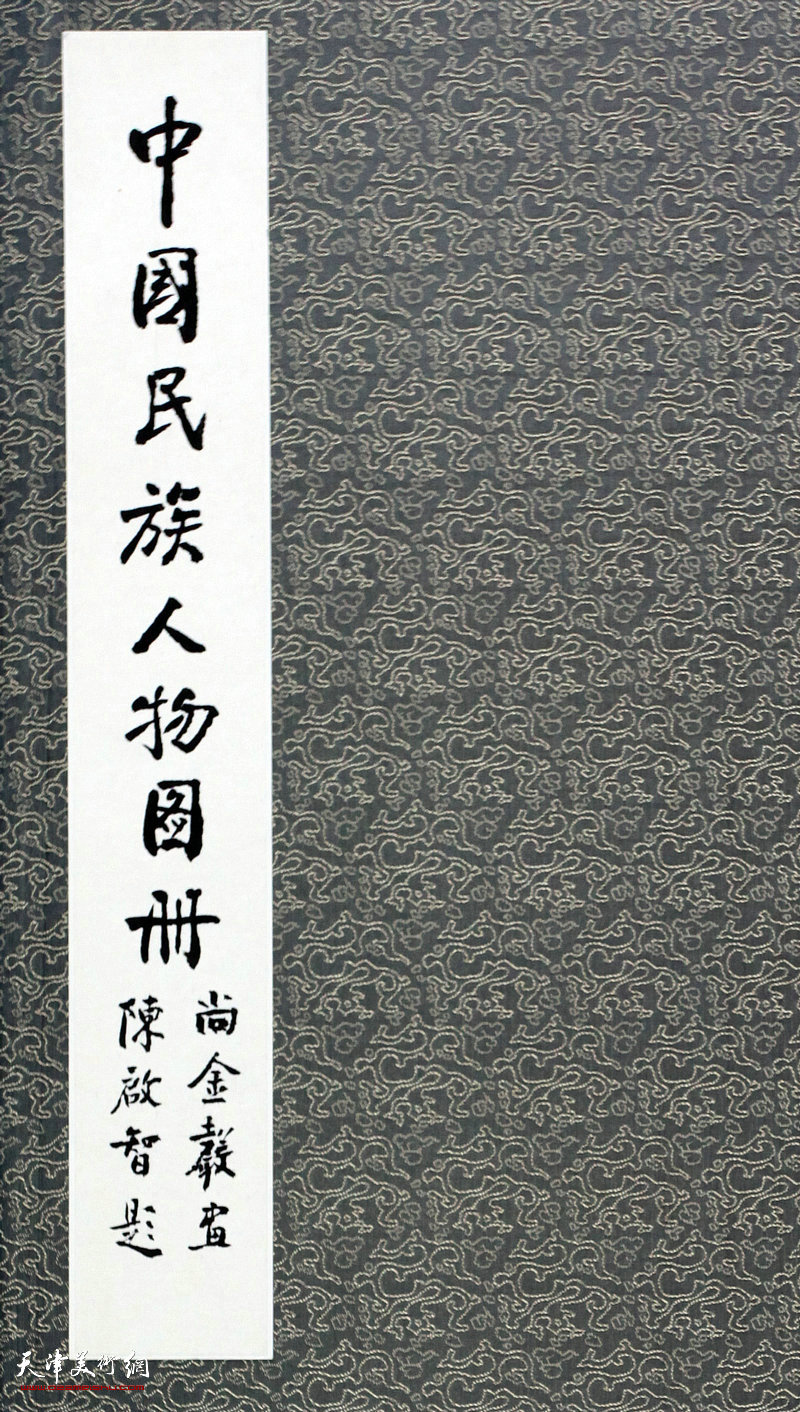 中國民族人物图册
尚金聲画
陳啟智题
天津美術網